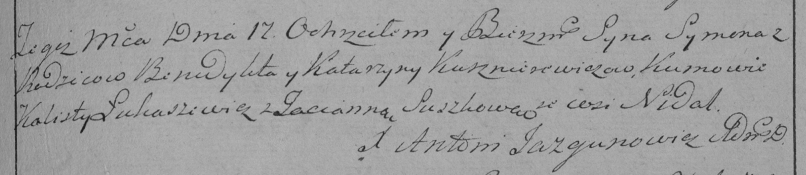 Tegiż Mca Dnia 17. Ochrzciłem y Bierzm Syna Symona z
Rodzicow Benedykta y Katarzyny Kusznierewiczow, Kumowie
Kalisty Łukaszewicz z Tacianną Suszkową ze wsi Nidal.
X Antoni Jazgunowicz